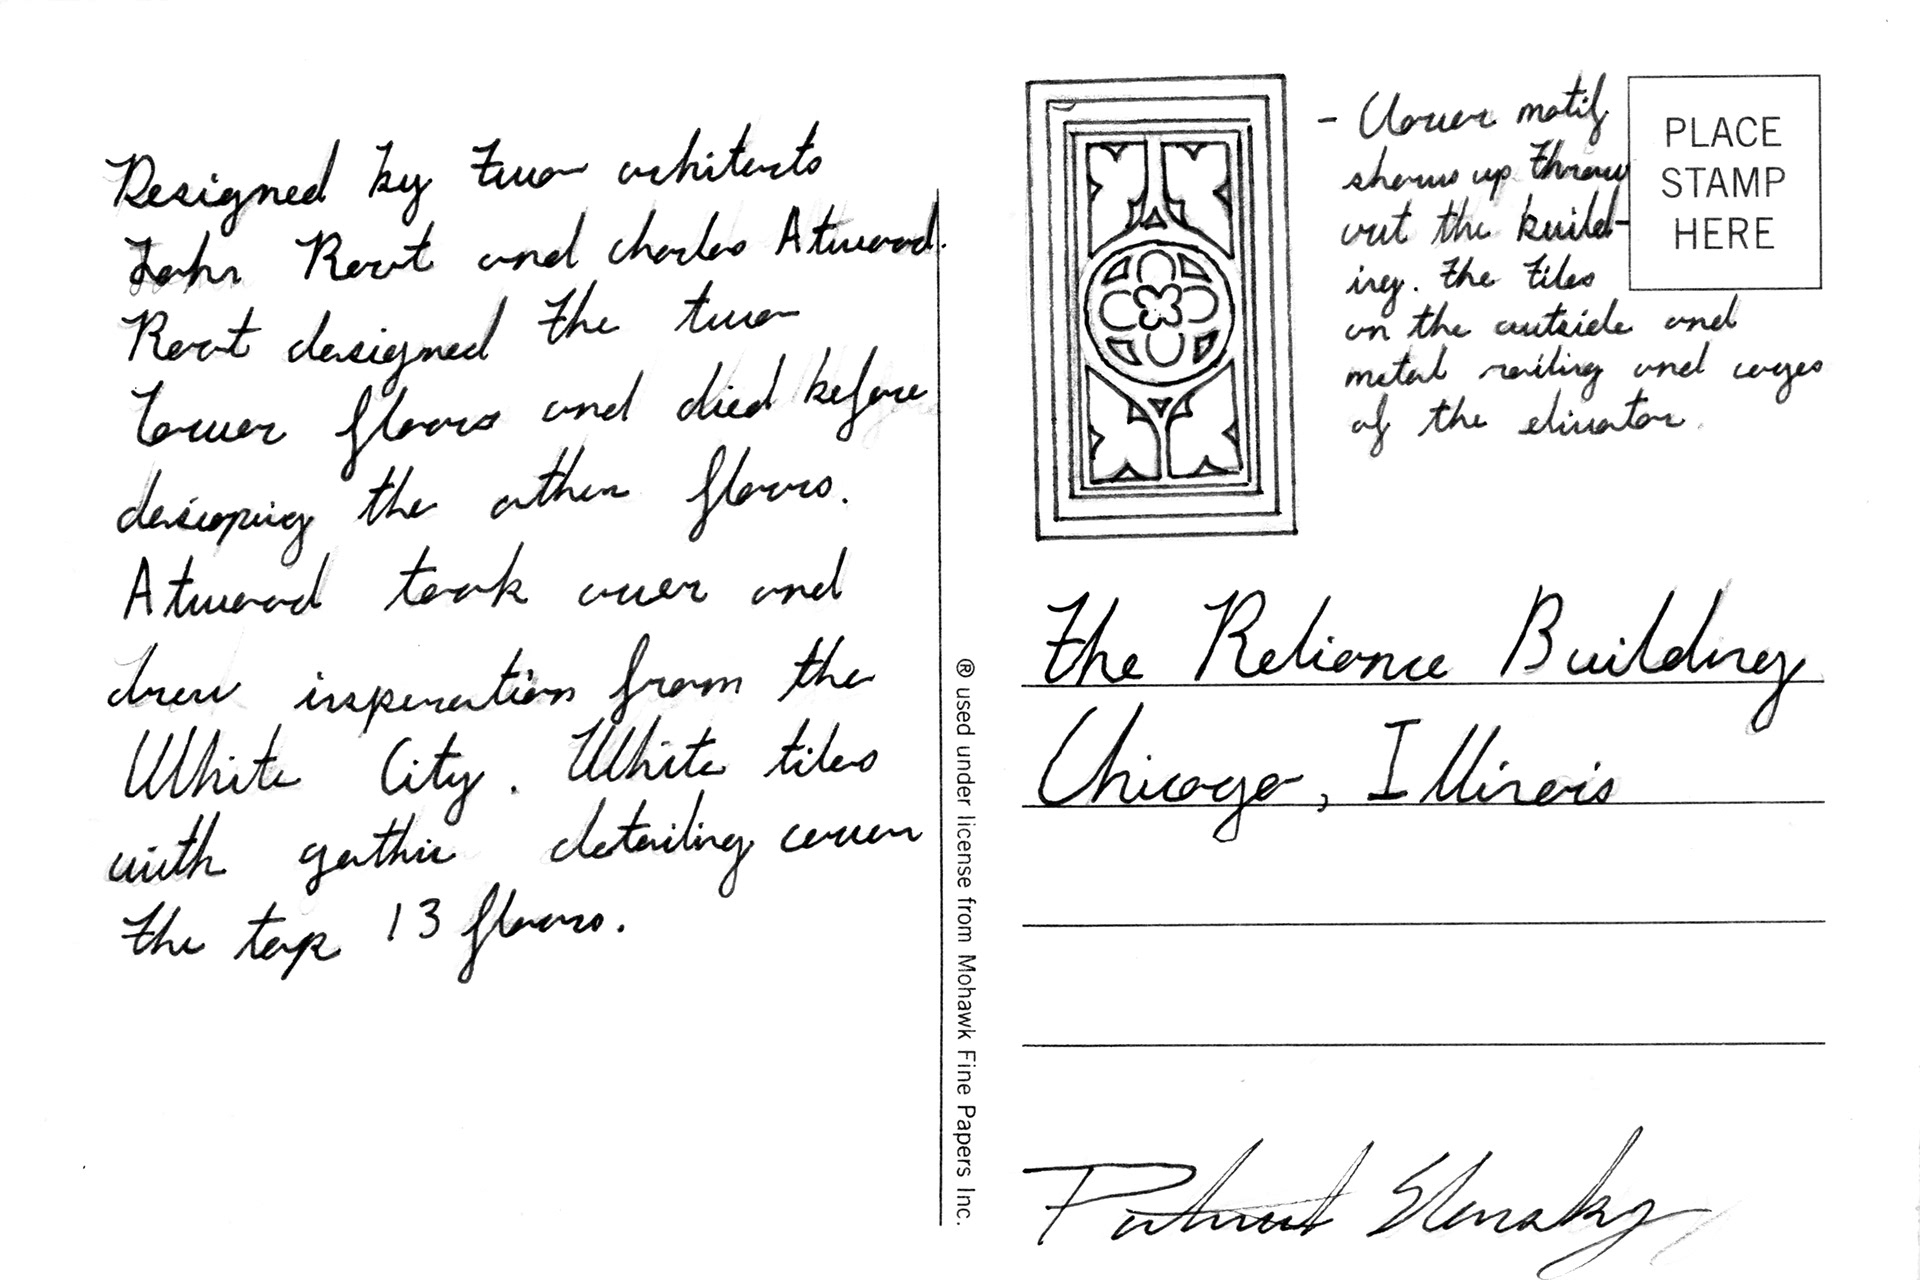 Designed by two architects
John Root and charles Atwood.
Root designed the two
lower floors and died before
designing the other floors.
Atwood took over and
drew insperation from the
White City. White tiles
with gothic detailing cover
the top 13 floors.
® used under license from Mohawk Fine Papers Inc.
- Clover motif
shows up throw
out the build-
ing. the tiles
on the outside and
metal railing and cages
of the elivator.
PLACE
STAMP
HERE
the Reliance Building
Chicago, Illinois